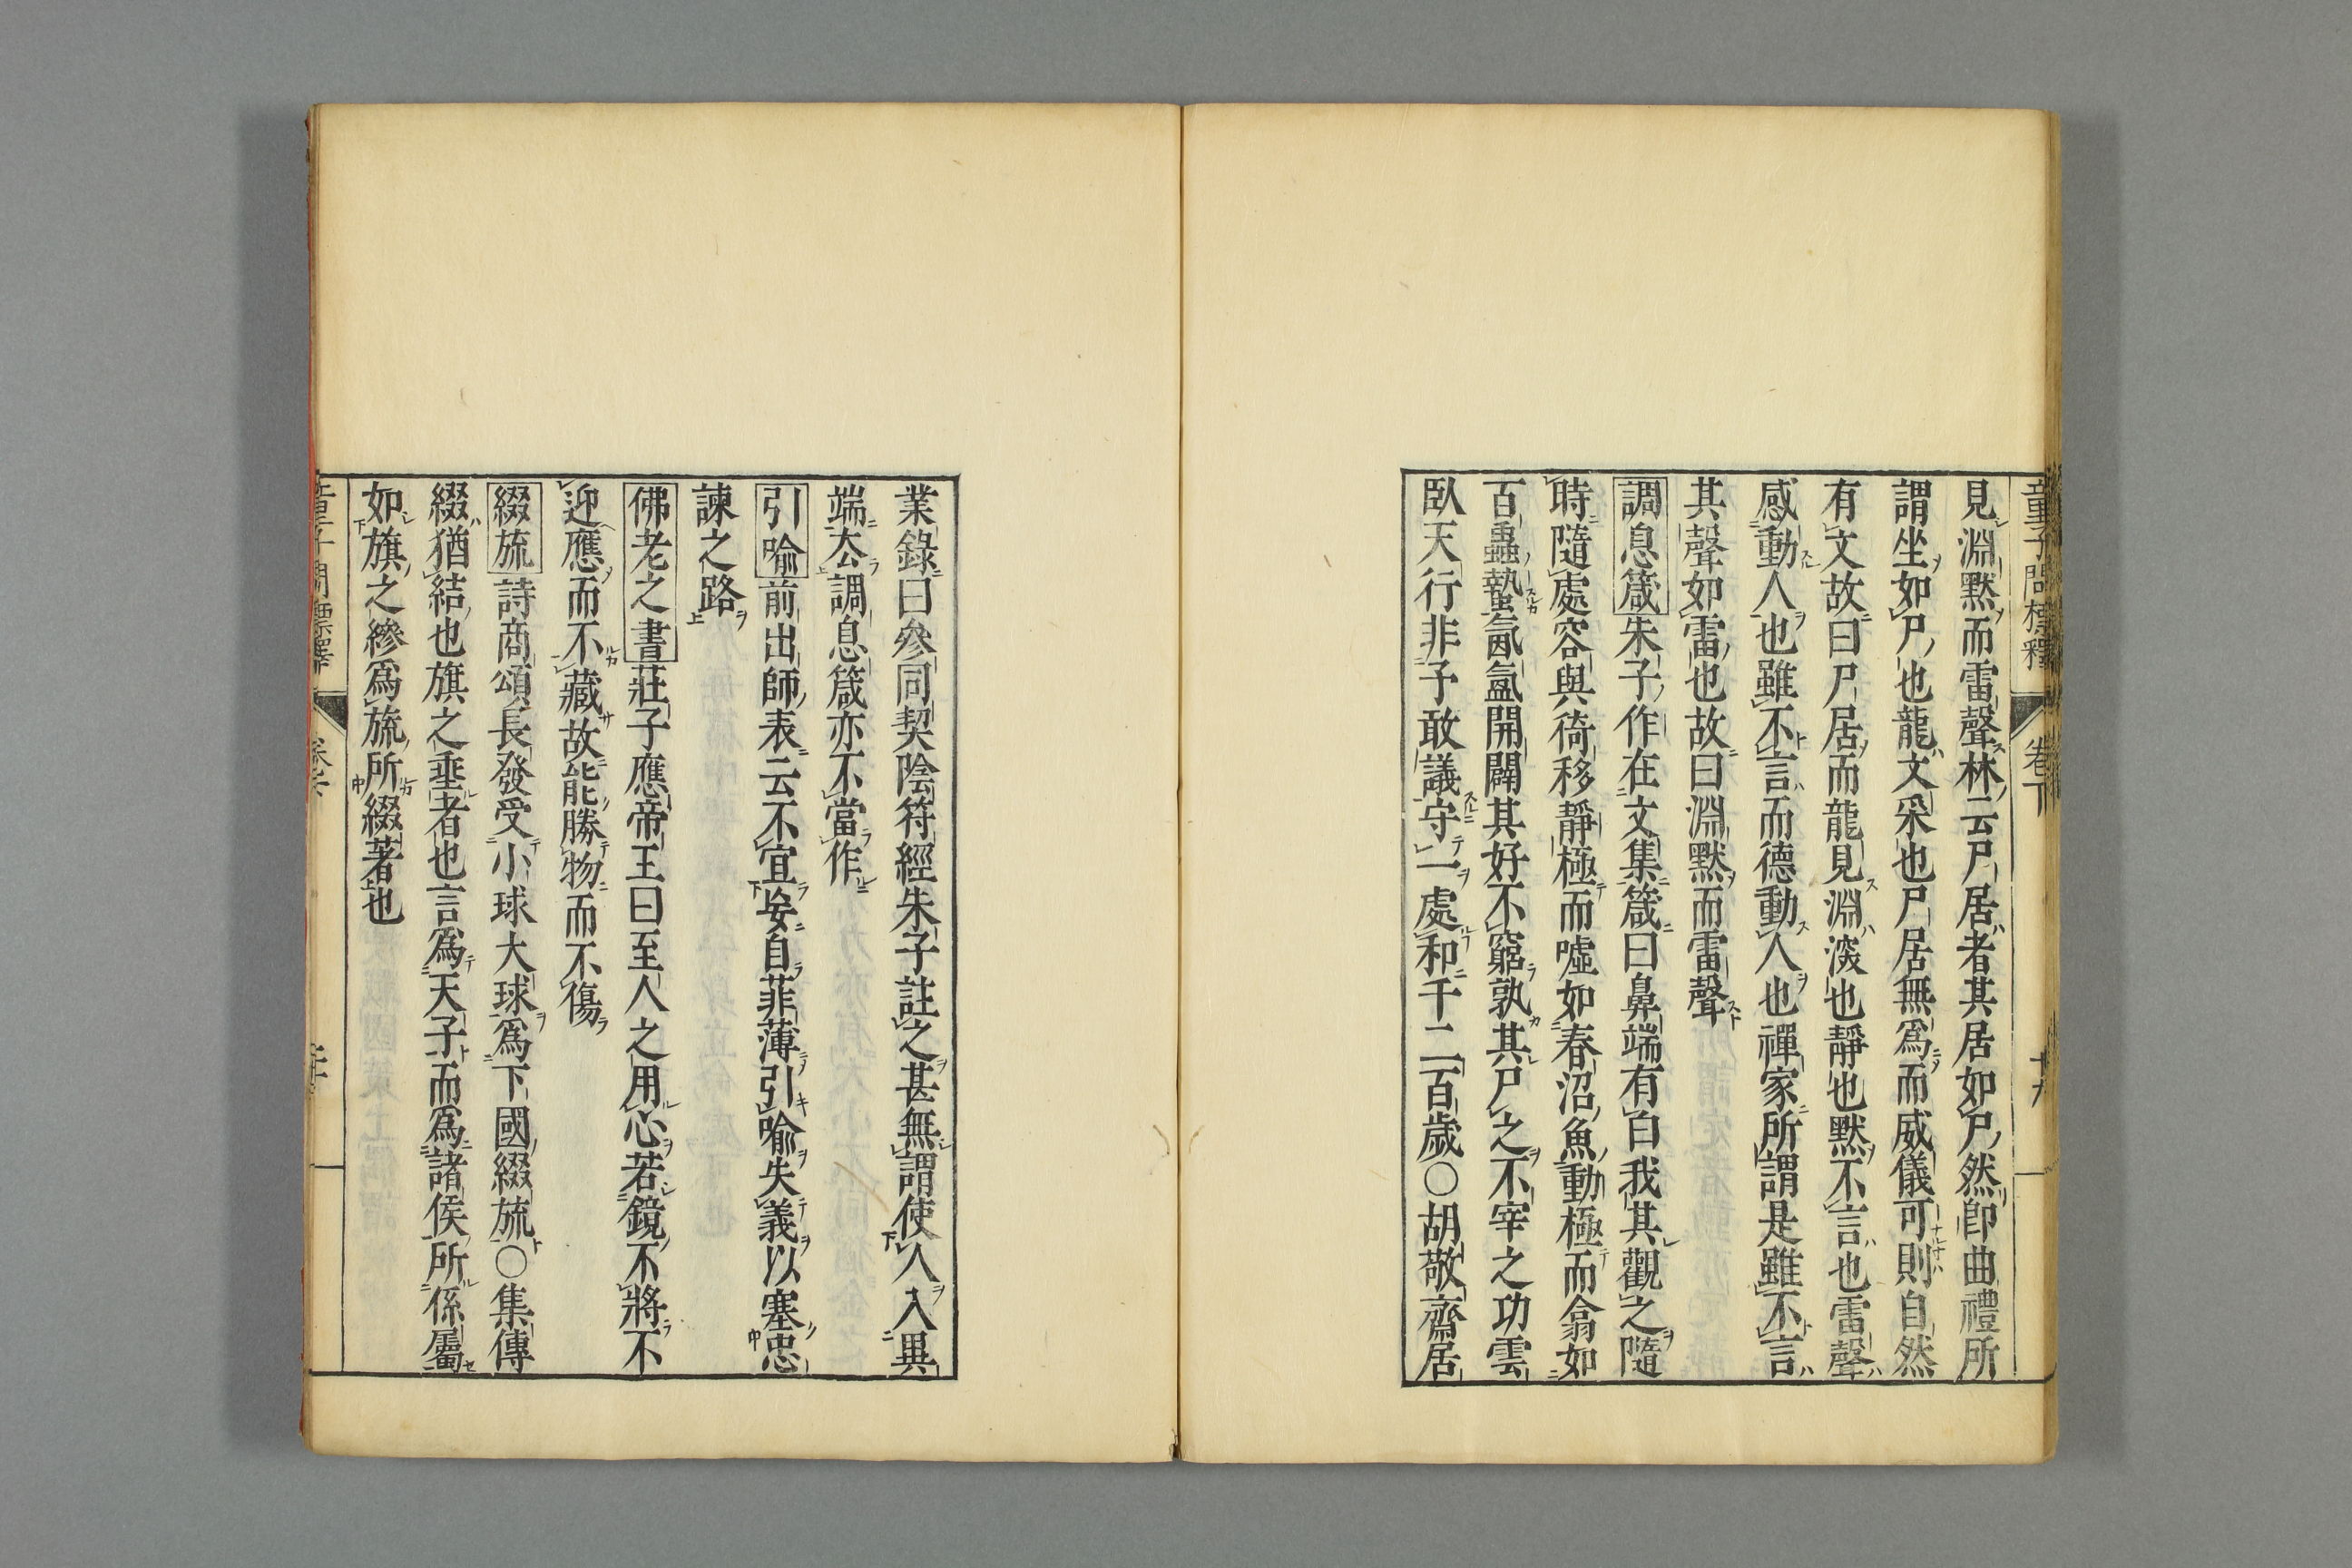 童子問標釋 卷下 十九
見淵默而雷聲林云尸居者其居如尸然卽曲禮所
謂坐如尸也龍文采也尸居無爲而威儀可則自然
有文故曰尸居而龍見淵湥也靜也默不言也雷聲
感動人也雖不言而德動人也禪家所謂是雖不言
其聲如雷也故曰淵默而雷聲
調息箴朱子作在文集箴曰鼻端有白我其觀之隨
時隨處容與猗移靜極而噓如春沼魚動極而翕如
百蟲蟄氤氳開闢其好不窮孰其尸之不宰之功雲
臥天行非予敢議守一處和千二百歲○胡敬齋居
業錄曰參同契陰符經朱子註之甚無謂使人入異
端去調息箴亦不當作
引喩前出師表云不宜妄自菲薄引喩失義以塞忠
諫之路
佛老之書莊子應帝王曰至人之用心若鏡不將不
迎應而不藏故能勝物而不傷
綴旒詩商頌長發受小球大球爲下國綴旒○集傳
綴猶結也旗之垂者也言爲天子而爲諸侯所係屬
如旗之縿爲旒所綴著也